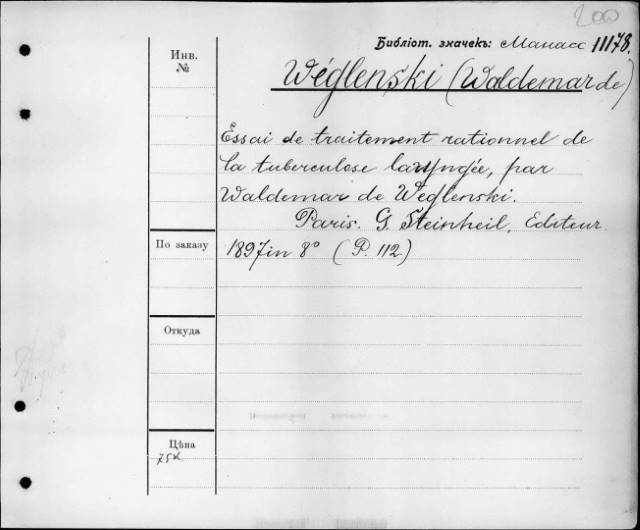 200
Библіот. значекъ: Манасс 11178.
Инв.
№
Wéglenski (Waldemar de)
Essai de traitement rationnel de
la tuberculose laryngée, par
Waldemar de Weglenski.
Paris. G. Steinheil, Editeur.
По заказу
1897 in 8° (P. 112)
Откуда
Цѣна
75к.